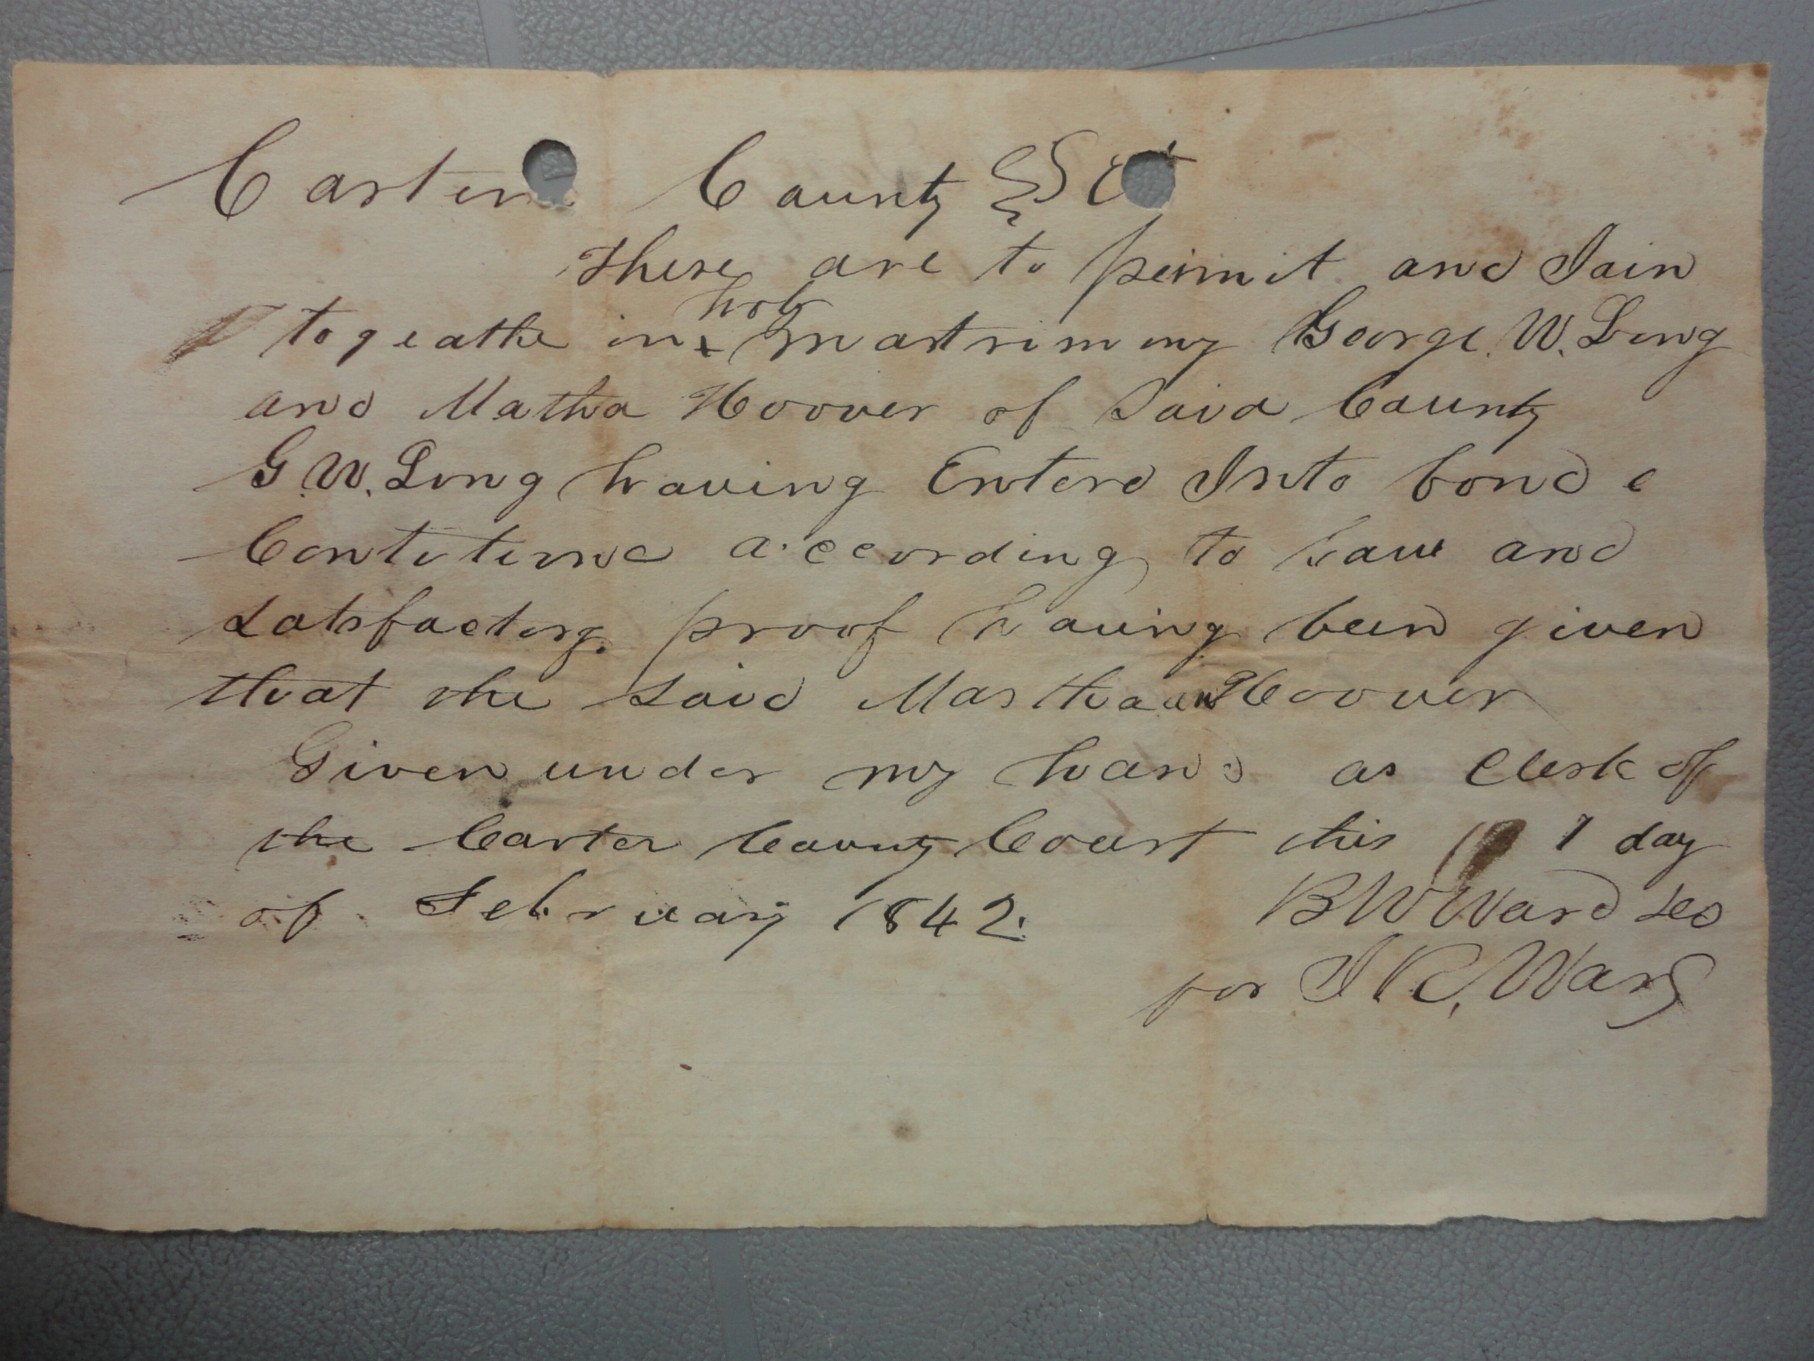 Carter County } Sct
These are to permit and Join
togeathe in holy Matrimony George. W. Long
and Matha Hoover of Said County
G. W. Long having Enterd Into bond
according to Law and
Satisfactory proof having been given
that the Said Martha Hoover
Given under my hand as Clerk of
the Carter County Court this 1 day
of February 1842. B W Ward
for J R, Ward